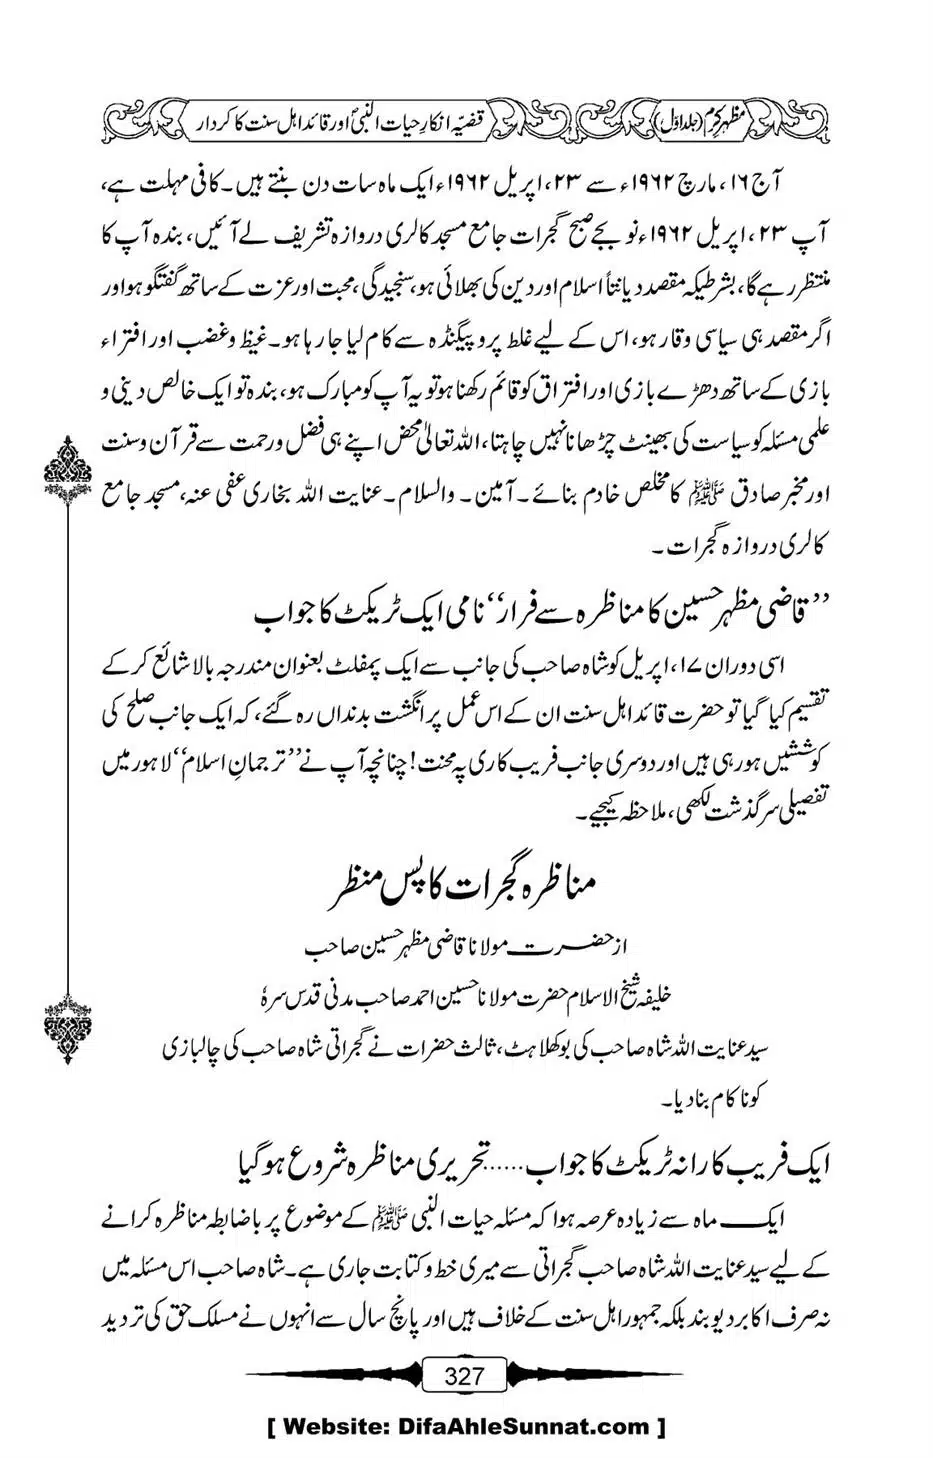 مظہرِ کرم (جلد اوّل) قضیّہ انکارِ حیات النبیؐ اور قائد اہل سنت کا کردار
آج ۱۶، مارچ ۱۹۶۲ء سے ۲۳، اپریل ۱۹۶۲ء ایک ماہ سات دن بنتے ہیں۔ کافی مہلت ہے،
آپ ۲۳، اپریل ۱۹۶۲ء نو بجے صبح گجرات جامع مسجد کالری دروازہ تشریف لے آئیں، بندہ آپ کا
منتظر رہے گا، بشرطیکہ مقصد دیانتاً اسلام اور دین کی بھلائی ہو، سنجیدگی، محبت اور عزت کے ساتھ گفتگو ہو اور
اگر مقصد ہی سیاسی وقار ہو، اس کے لیے غلط پروپیگنڈہ سے کام لیا جا رہا ہو۔ غیظ و غضب اور افتراء
بازی کے ساتھ دھڑے بازی اور افتراق کو قائم رکھنا ہو تو یہ آپ کو مبارک ہو، بندہ تو ایک خالص دینی و
علمی مسئلہ کو سیاست کی بھینٹ چڑھانا نہیں چاہتا، اللہ تعالیٰ محض اپنے ہی فضل و رحمت سے قرآن و سنت
اور مخبر صادق ﷺ کا مخلص خادم بنائے۔ آمین۔ والسلام۔ عنایت اللہ بخاری عفی عنہ، مسجد جامع
کالری دروازہ گجرات۔
’’قاضی مظہر حسین کا مناظرہ سے فرار‘‘ نامی ایک ٹریکٹ کا جواب
اسی دوران ۱۷، اپریل کو شاہ صاحب کی جانب سے ایک پمفلٹ بعنوان مندرجہ بالا شائع کر کے
تقسیم کیا گیا تو حضرت قائد اہل سنت ان کے اس عمل پر انگشت بدنداں رہ گئے، کہ ایک جانب صلح کی
کوششیں ہو رہی ہیں اور دوسری جانب فریب کاری پہ محنت! چنانچہ آپ نے ’’ترجمانِ اسلام‘‘ لاہور میں
تفصیلی سرگذشت لکھی، ملاحظہ کیجیے۔
مناظرہ گجرات کا پس منظر
از حضرت مولانا قاضی مظہر حسین صاحب
خلیفہ شیخ الاسلام حضرت مولانا حسین احمد صاحب مدنی قدس سرہٗ
سید عنایت اللہ شاہ صاحب کی بوکھلاہٹ، ثالث حضرات نے گجراتی شاہ صاحب کی چالبازی
کو ناکام بنا دیا۔
ایک فریب کارانہ ٹریکٹ کا جواب......تحریری مناظرہ شروع ہو گیا
ایک ماہ سے زیادہ عرصہ ہوا کہ مسئلہ حیات النبی ﷺ کے موضوع پر باضابطہ مناظرہ کرانے
کے لیے سید عنایت اللہ شاہ صاحب گجراتی سے میری خط و کتابت جاری ہے۔ شاہ صاحب اس مسئلہ میں
نہ صرف اکابر دیوبند بلکہ جمہور اہل سنت کے خلاف ہیں اور پانچ سال سے انہوں نے مسلک حق کی تردید
327
[ Website: DifaAhleSunnat.com ]